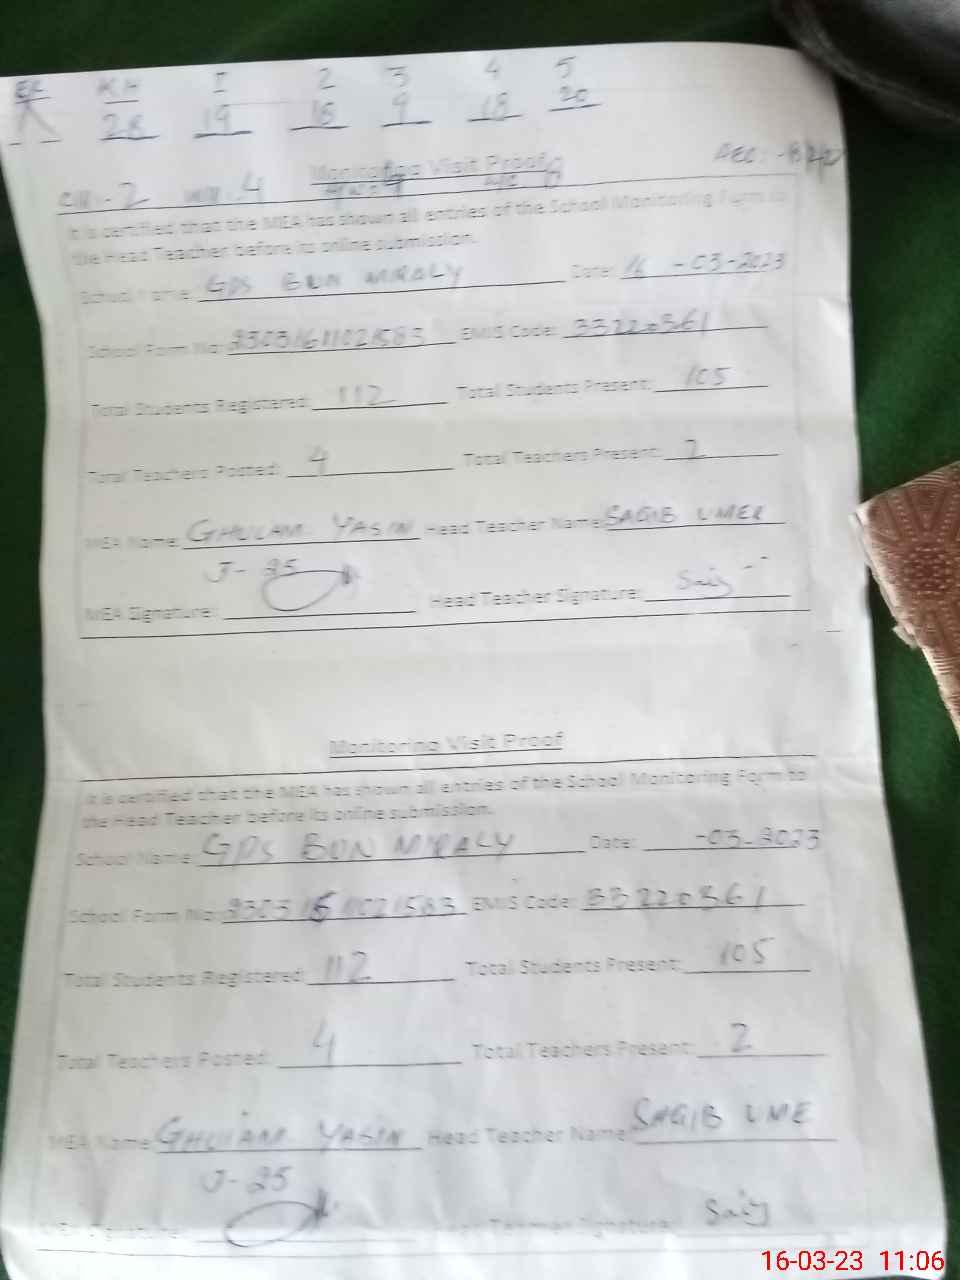 KH I 2 3 4 5
28 19 18 9 18 20
Monitoring Visit Proof
It is certified that the MEA has shown all entries of the School Monitoring Form to
the Head Teacher before its online submission.
School Name: GPS BUN MIRALY Date: 16-03-2023
School Form No: EMIS Code: 33220361
Total Students Registered: 112 Total Students Present: 105
Total Teachers Posted: 4 Total Teachers Present: 2
MEA Name: GHULAM YASIN Head Teacher Name: SAGIB UMER
J-25
MEA Signature: Head Teacher Signature:
Monitoring Visit Proof
It is certified that the MEA has shown all entries of the School Monitoring Form to
the Head Teacher before its online submission.
School Name: GPS BUN MIRALY Date: -03-2023
School Form No: EMIS Code: 33220361
Total Students Registered: 112 Total Students Present: 105
Total Teachers Posted: 4 Total Teachers Present: 2
MEA Name: GHULAM YASIN Head Teacher Name: SAGIB UME
J-25
MEA Signature: Head Teacher Signature:
16-03-23 11:06